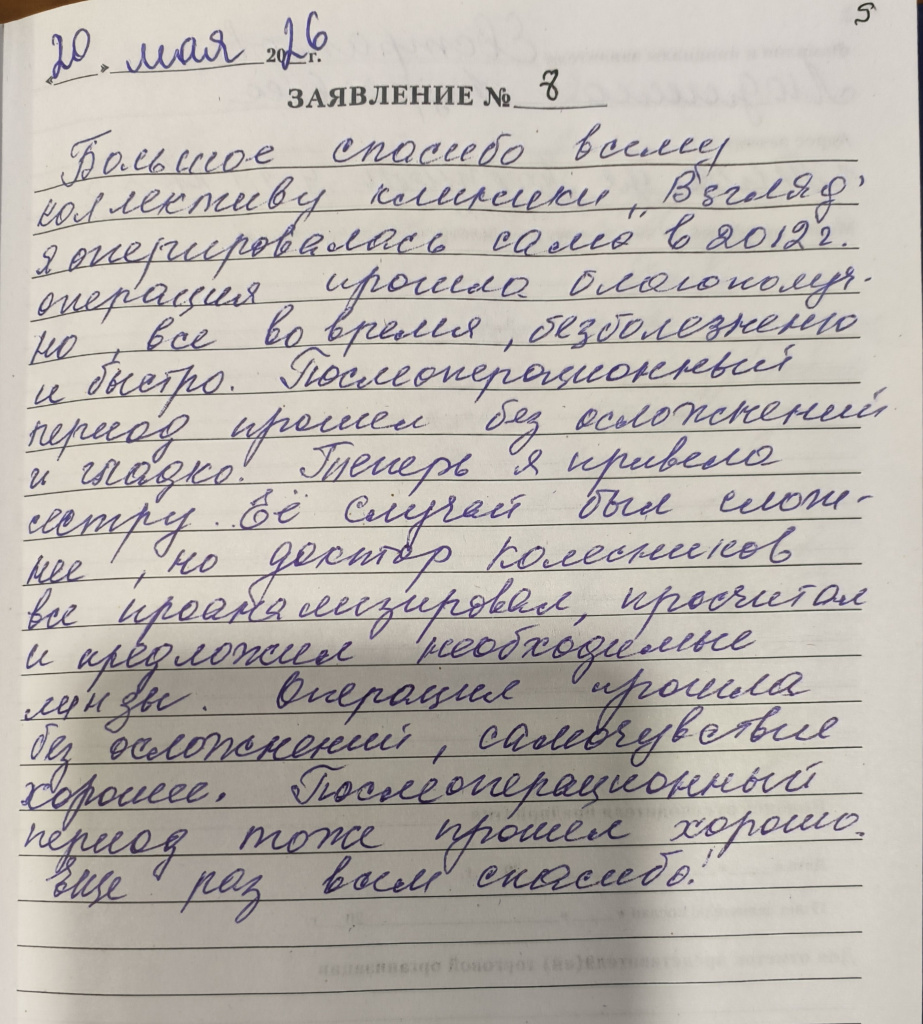 5
20 мая 2026 г.
ЗАЯВЛЕНИЕ № 8
Большое спасибо всему
коллективу клиники „Взгляд"
я оперировалась сама в 2012 г.
операция прошла благополуч-
но, все во время, безболезненно
и быстро. Послеоперационный
период прошел без осложнений
и гладко. Теперь я привела
сестру. Её случай был слож-
нее, но доктор Колесников
все проанализировал, просчитал
и предложил необходимые
линзы. Операция прошла
без осложнений, самочувствие
хорошее. Послеоперационный
период тоже прошел хорошо.
Еще раз всем спасибо!